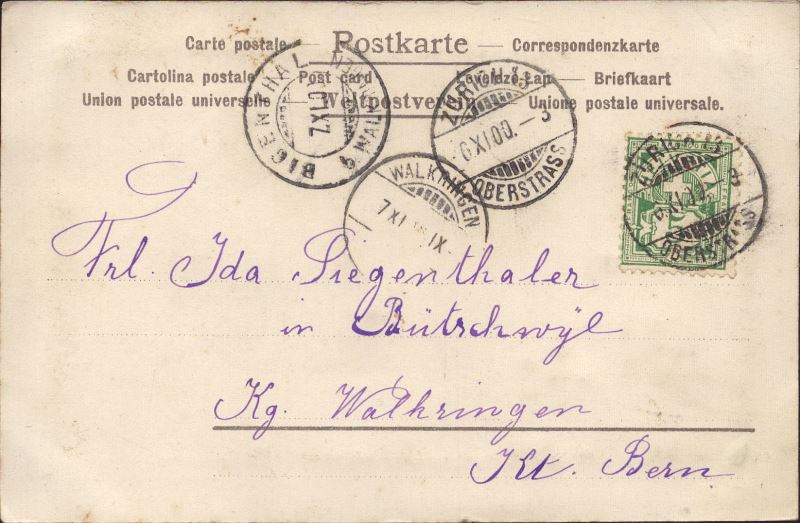 Carte postale — Postkarte — Correspondenzkarte
Cartolina postale — Post card — Levelező-Lap — Briefkaart
Union postale universelle — Weltpostverein — Unione postale universale.
BIGENTHAL
ZÜRICH
6 XI.00. – 3
OBERSTRASS
WALKRINGEN
7 XI. IX.
OBERSTRASS
Frl. Ida Siegenthaler
in Bütschwyl
Kg. Walkringen
Kt. Bern